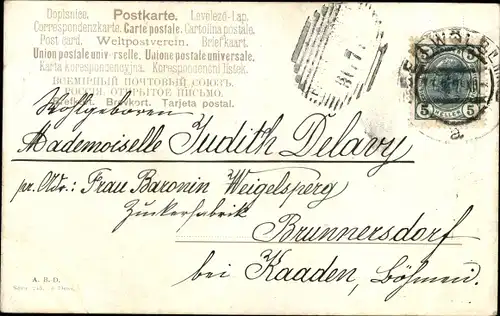 Dopisnice. Postkarte. Levelező-Lap.
Correspondenzkarte. Carte postale. Cartolina postale.
Post card. Weltpostverein. Briefkaart.
Union postale universelle. Unione postale universale.
Karta korespondencyjna. Korespondencni listek.
ВСЕМІРНЫЙ ПОЧТОВЫЙ СОЮЗЪ.
РОССІЯ. ОТКРЫТОЕ ПИСЬМО.
Brefkort. Brevkort. Tarjeta postal.
5 5
HELLER
Wohlgeboren
Mademoiselle Judith Delavy
pr. Adr.: Frau Baronin Weigelsperg
Zuckerfabrik
Brunnersdorf
bei Kaaden, Böhmen.
A. B. D.